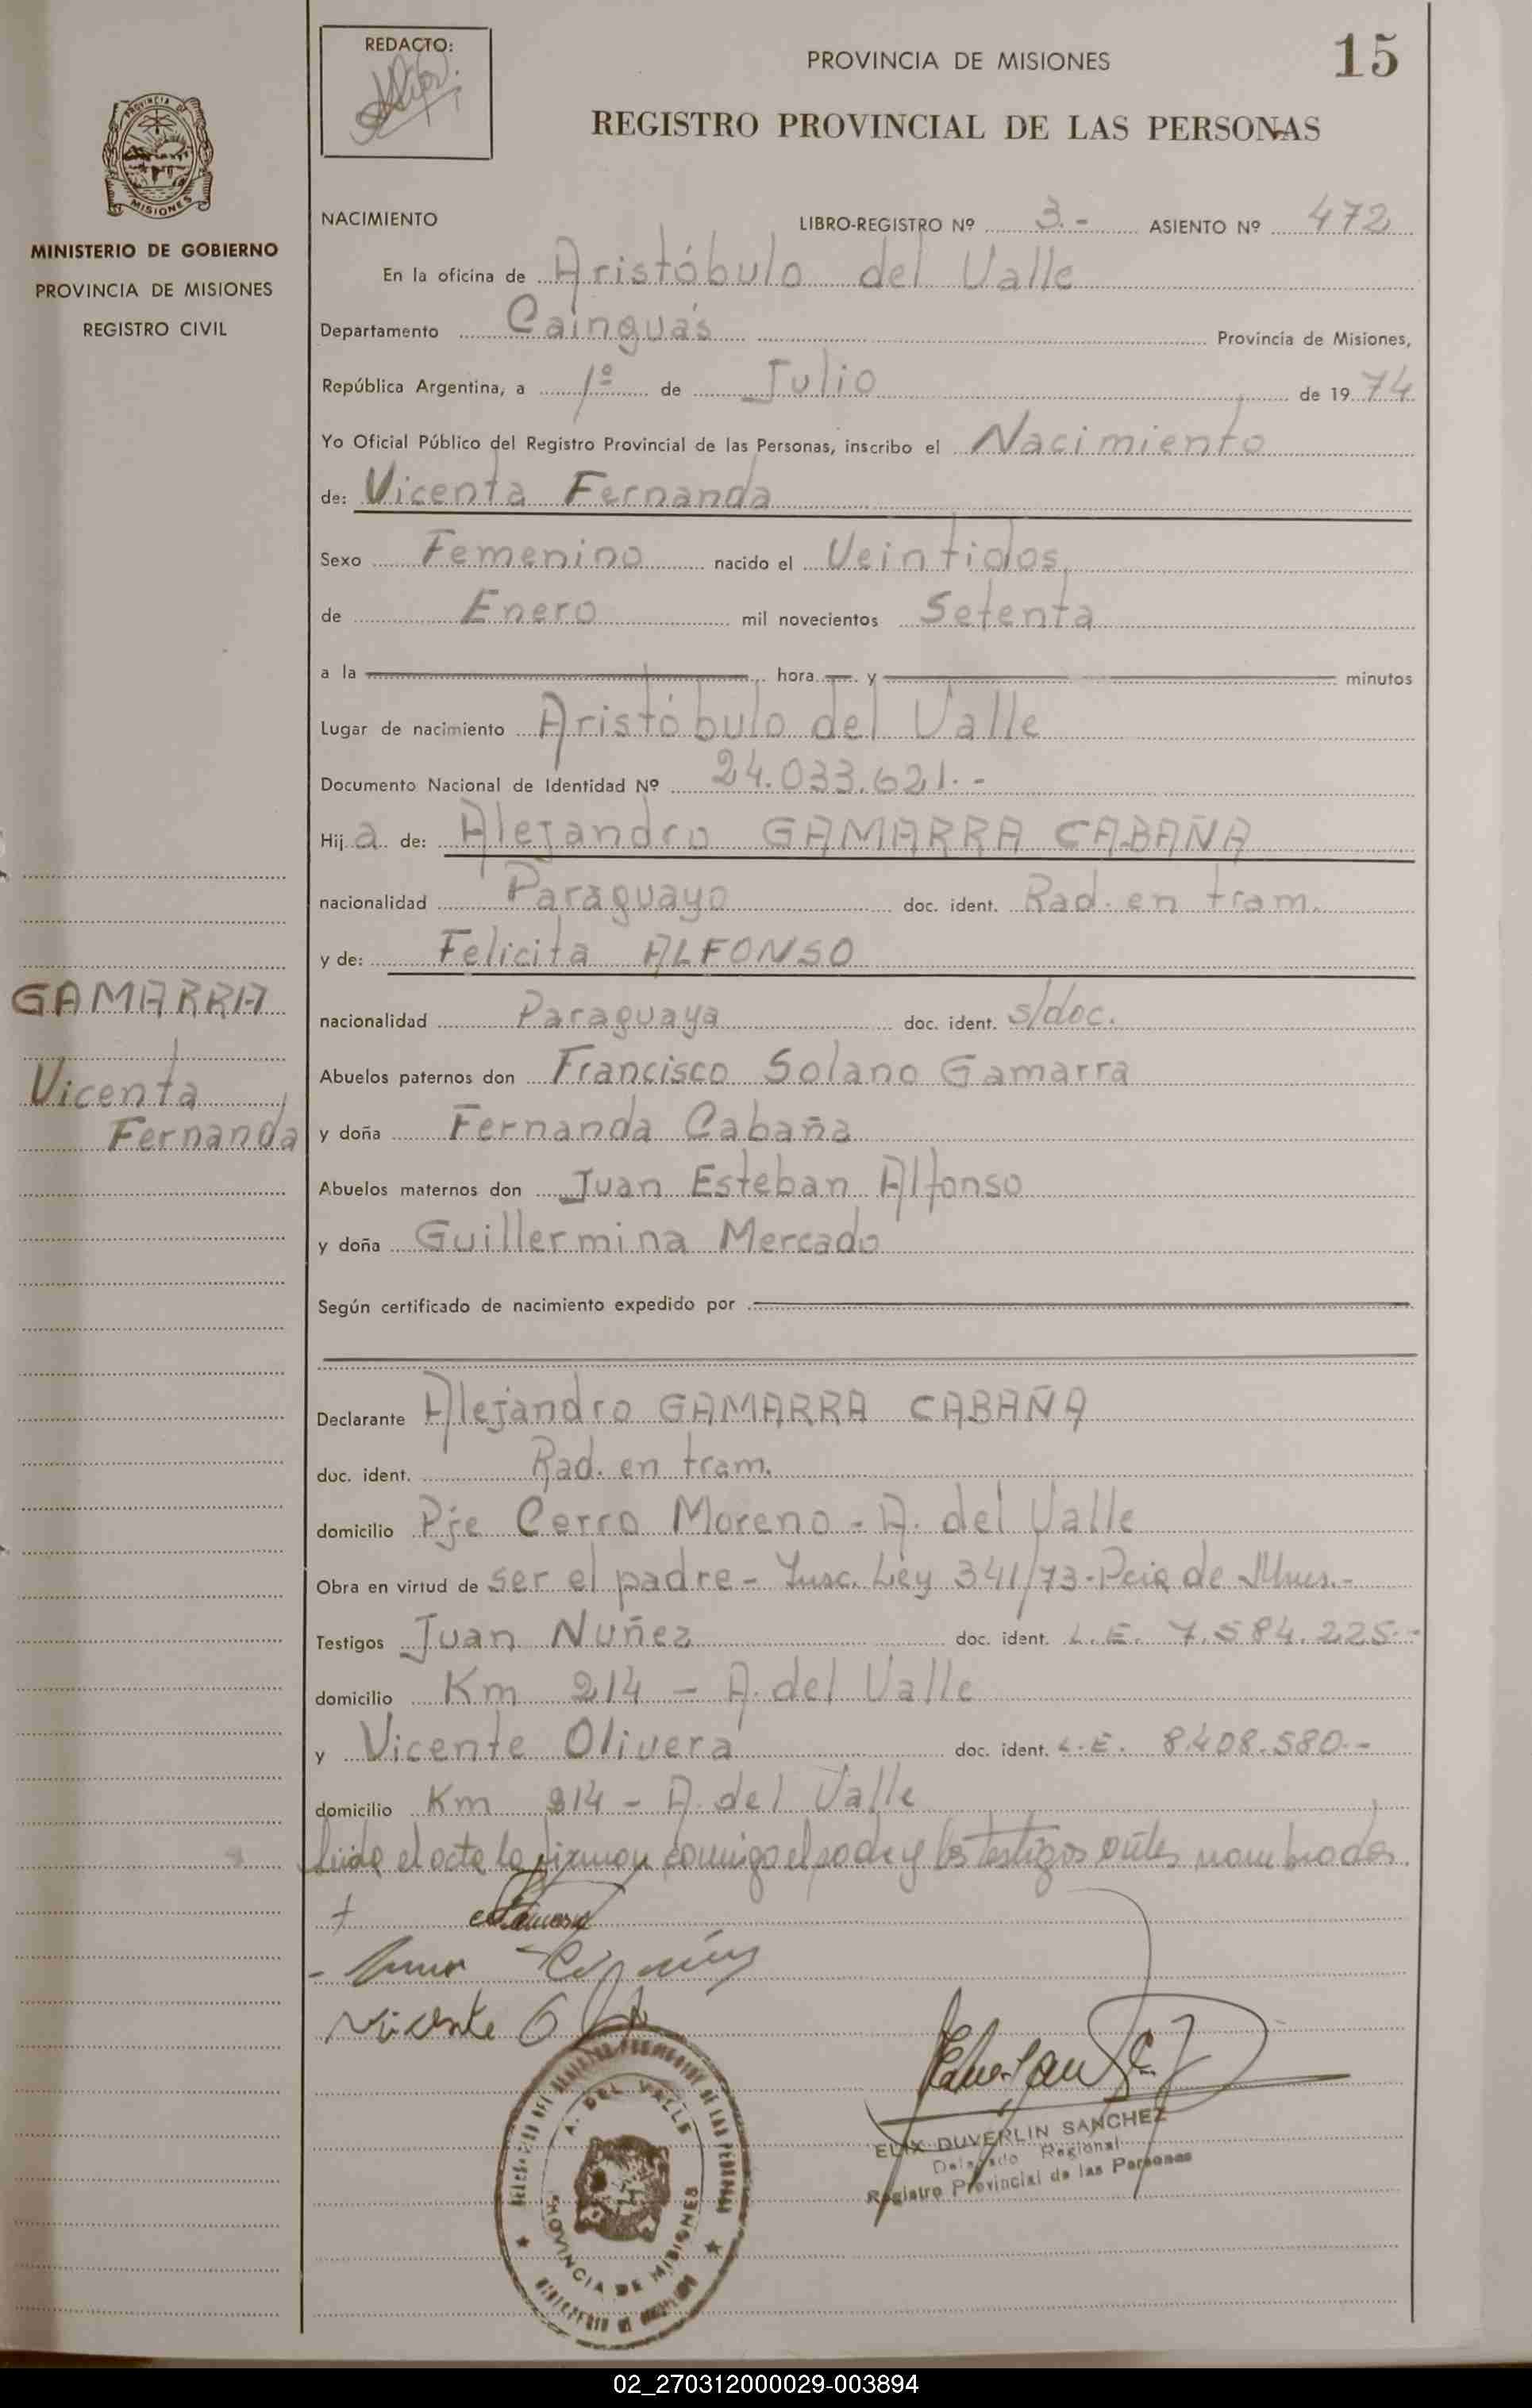 REDACTO:
PROVINCIA DE MISIONES
15
REGISTRO PROVINCIAL DE LAS PERSONAS
PROVINCIA DE
MISIONES
MINISTERIO DE GOBIERNO
PROVINCIA DE MISIONES
REGISTRO CIVIL
NACIMIENTO LIBRO-REGISTRO Nº 3.- ASIENTO Nº 472
En la oficina de Aristóbulo del Valle
Departamento Cainguás Provincia de Misiones,
República Argentina, a 1º de Julio de 19 74
Yo Oficial Público del Registro Provincial de las Personas, inscribo el Nacimiento
de: Vicenta Fernanda
Sexo Femenino nacido el Veintidos
de Enero mil novecientos Setenta
a la hora y minutos
Lugar de nacimiento Aristóbulo del Valle
Documento Nacional de Identidad Nº 24.033.621.-
Hij a de: Alejandro GAMARRA CABAÑA
nacionalidad Paraguayo doc. ident. Rad. en tram.
y de: Felicita ALFONSO
nacionalidad Paraguaya doc. ident. s/doc.
Abuelos paternos don Francisco Solano Gamarra
y doña Fernanda Cabaña
Abuelos maternos don Juan Esteban Alfonso
y doña Guillermina Mercado
Según certificado de nacimiento expedido por
GAMARRA
Vicenta
Fernanda
Declarante Alejandro GAMARRA CABAÑA
doc. ident. Rad. en tram.
domicilio Pje Cerro Moreno - A. del Valle
Obra en virtud de ser el padre - Insc. Ley 341/73 - Pcia de Mnes.-
Testigos Juan Nuñez doc. ident. L.E. 7.584.225.-
domicilio Km 214 - A. del Valle
y Vicente Olivera doc. ident. L.E. 8408.580.-
domicilio Km 214 - A. del Valle
Leida el acta la firman conmigo el padre y los testigos antes nombrados.
Vicente
A. DEL VALLE
PROVINCIA DE MISIONES
ELIX DUVERLIN SANCHEZ
Delegado Regional
Registro Provincial de las Personas
02_270312000029-003894